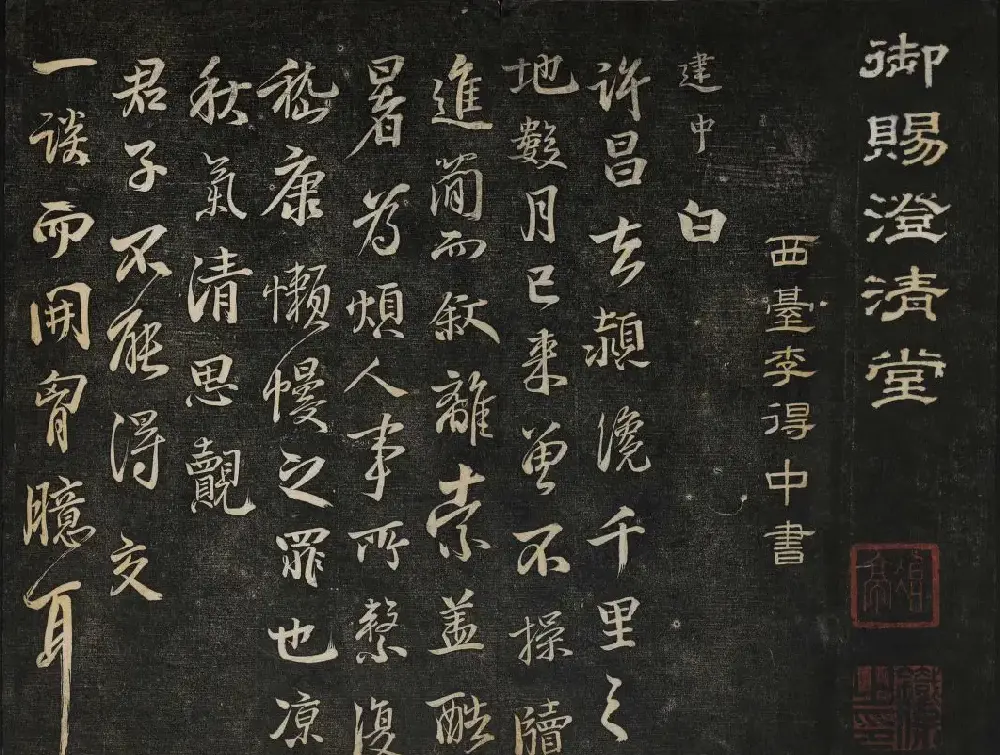 御賜澄清堂
西臺李得中書
建中白
許昌去潁千里之
地數月已来曾不操牘
進簡而敘離索盖酷
暑為煩人事所繫復
嵇康懶慢之罪也凉
秋氣清思覿
君子不能得交
一談而開胷臆耳